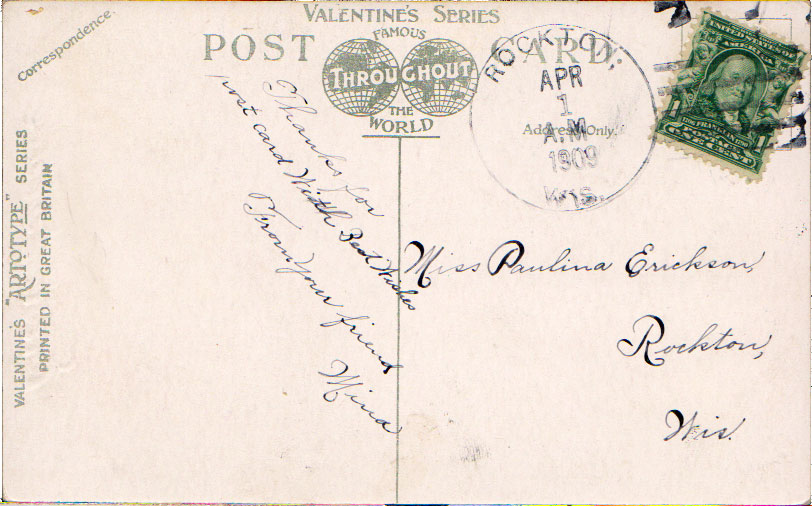 VALENTINE'S SERIES
POST CARD.
FAMOUS
THROUGHOUT
THE
WORLD
Correspondence.
Address Only.
VALENTINE'S "ARTOTYPE" SERIES
PRINTED IN GREAT BRITAIN
ROCKTON,
APR
1
A.M
1909
WIS.
UNITED STATES OF
AMERICA
1 1
ONE CENT
Thanks for
post card With Best Wishes
From Your friend
Mina
Miss Paulina Erickson,
Rockton,
Wis.